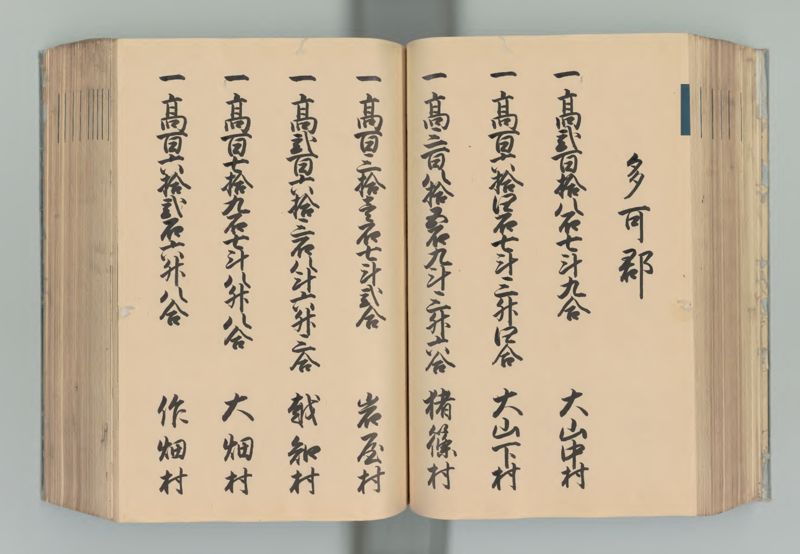 多可郡
一 高弐百拾八石七斗九合 大山中村
一 高百六拾四石七斗三升四合 大山下村
一 高三百八拾五石九斗三升六合 猪篠村
一 高百三拾壱石七斗弐合 岩屋村
一 高弐百六拾三石八斗六升三合 越知村
一 高百七拾九石七斗八升八合 大畑村
一 高百六拾弐石六升八合 作畑村